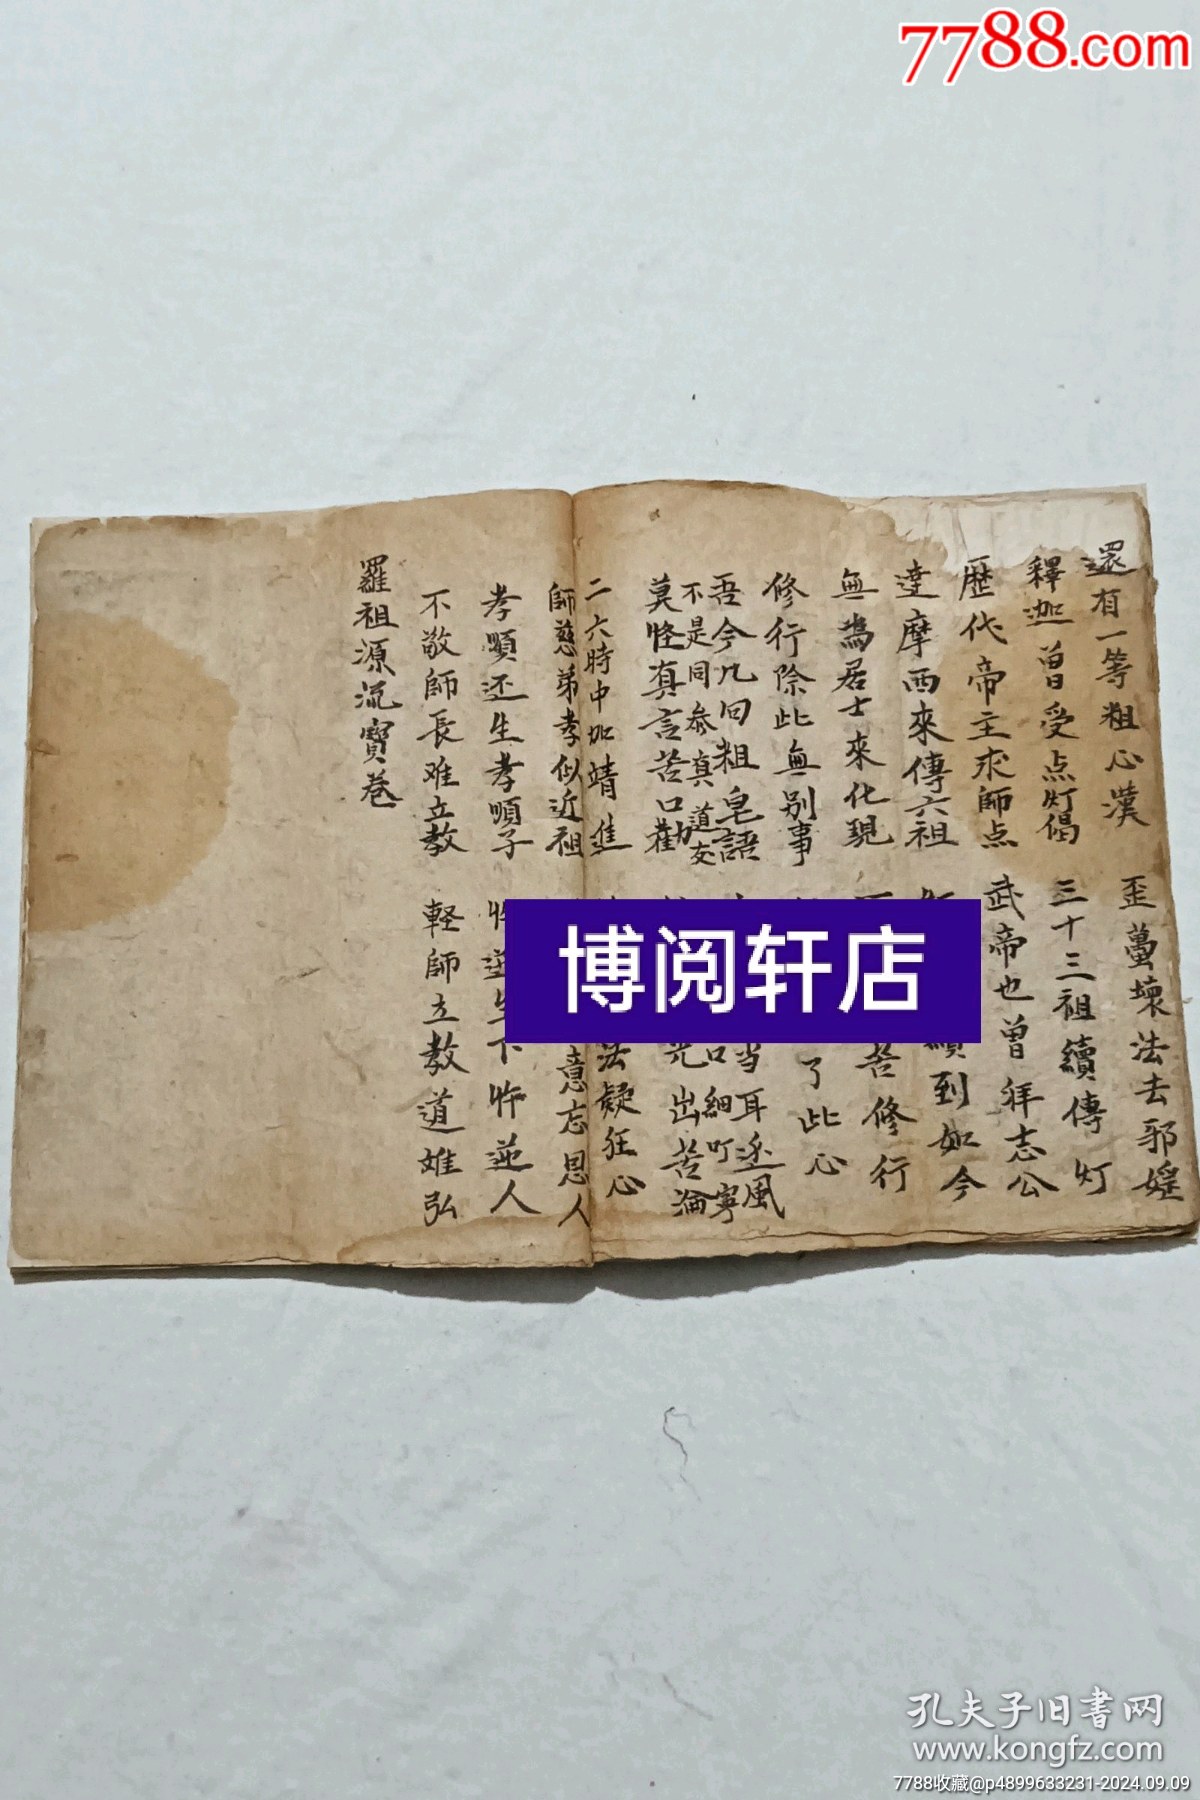 7788.com
還有一等粗心漢 歪萬壞法去邪婬
釋迦曾受点灯偈 三十三祖續傳灯
歷代帝主求師点 武帝也曾拜志公
達摩西來傳六祖 續到如今
無為居士來化現 苦修行
修行除此無别事 了此心
吾今凡曰粗皂語 当耳边風
不是同參真道友 口細叮寧
莫怪真言苦口勸 光出苦淪
二六時中加靖進 法疑狂心
師慈弟孝似近祖 意忘恩人
孝順还生孝順子 忤逆生下忤逆人
不敬師長难立教 軽師立教道难弘
羅祖源流寶卷
博阅轩店
孔夫子旧书网
www.kongfz.com
7788收藏@p4899633231-2024.09.09